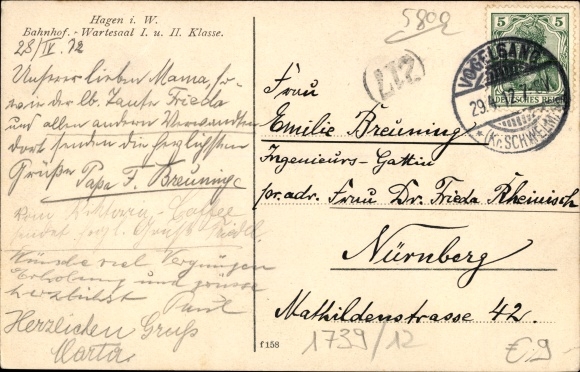 Hagen i. W.
Bahnhof. - Wartesaal I. u. II. Klasse.
28/IV. 12
Unserer lieben Mama, so-
wie der lb. Tante Frieda
und allen anderen Verwandten
dort senden die herzlichsten
Grüße Papa F. Breuning
Vom Viktoria-Caffee
sendet herzl. Gruß
Wünsche viel Vergnügen
Erholung und grüsse
herzlichst Paul
Herzlichen Gruß
Marta
f 158
580a
5 5
DEUTSCHES REICH
VOGELSANG
29.4.12.
*(Kr. SCHWELM)
Frau
Emilie Breuning
Ingenieurs-Gattin
pr. adr. Frau Dr. Frieda Rheinisch
Nürnberg
Mathildenstrasse 42.
1739/12
€ 9-